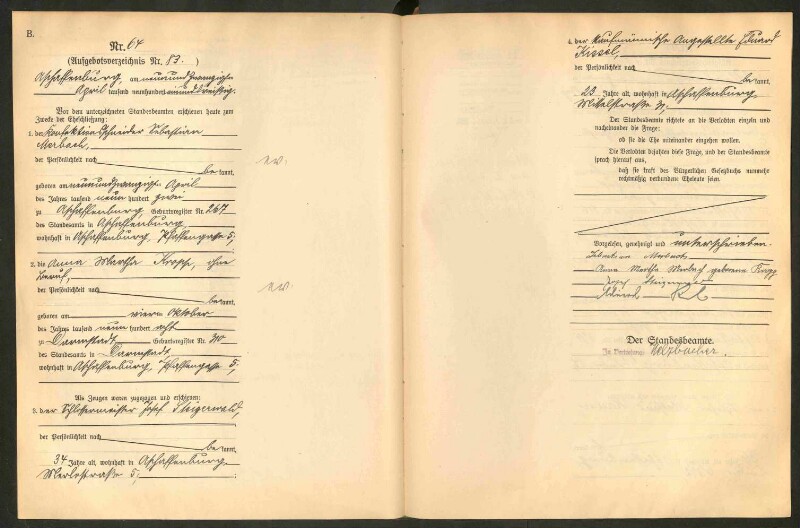 B.
Nr. 64
(Aufgebotsverzeichnis Nr. 83. )
Aschaffenburg, am neunundzwanzigsten
April tausend neunhundert
Vor dem unterzeichneten Standesbeamten erschienen heute zum
Zwecke der Eheschließung:
1. der Konfektionsschneider Sebastian
Morbach,
der Persönlichkeit nach
be kannt,
geboren am neunundzwanzigsten April
des Jahres tausend neun hundert zwei
zu Aschaffenburg, Geburtsregister Nr. 267
des Standesamts in Aschaffenburg,
wohnhaft in Aschaffenburg, Pfaffengasse 5;
ev.
2. die Anna Martha Kropp, ohne
Beruf,
der Persönlichkeit nach
be kannt,
geboren am vierten Oktober
des Jahres tausend neun hundert acht
zu Darmstadt, Geburtsregister Nr.
des Standesamts in Darmstadt,
wohnhaft in Aschaffenburg, Pfaffengasse 5;
ev
Als Zeugen waren zugezogen und erschienen:
3. der Schlossermeister Josef Steigerwald,
der Persönlichkeit nach
be kannt,
34 Jahre alt, wohnhaft in Aschaffenburg,
5;
4. der kaufmännische Angestellte Eduard
Kissel,
der Persönlichkeit nach
be kannt,
23 Jahre alt, wohnhaft in Aschaffenburg,
Der Standesbeamte richtete an die Verlobten einzeln und
nacheinander die Frage:
ob sie die Ehe miteinander eingehen wollen.
Die Verlobten bejahten diese Frage, und der Standesbeamte
sprach hierauf aus,
daß sie kraft des Bürgerlichen Gesetzbuchs nunmehr
rechtmäßig verbundene Eheleute seien.
Vorgelesen, genehmigt und unterschrieben.
Sebastian Morbach
Anna Martha Morbach geborene Kropp
Josef Steigerwald
Eduard Kissel
Der Standesbeamte.
In Vertretung: